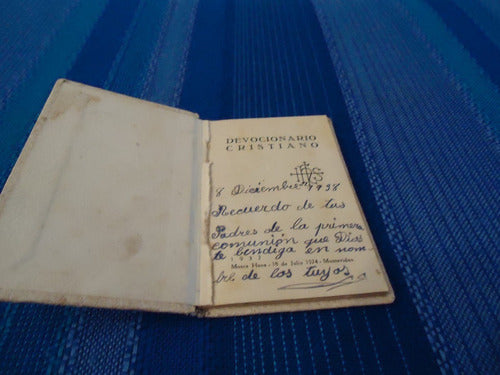 DEVOCIONARIO
CRISTIANO
JHS
8 Diciembre 1938
Recuerdo de tus
Padres de la primera
comunión que Dios
te bendiga en nom
1933
Mosca Hnos. - 18 de Julio 1574 - Montevideo
bre de los tuyos